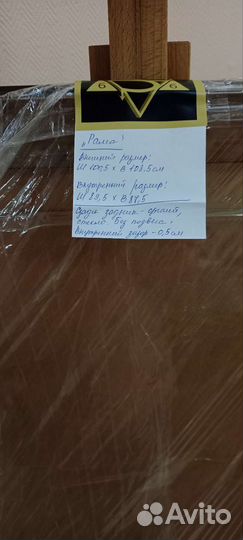 6 6
"Рама"
Внешний размер:
Ш 100,5 х В 108,5 см
Внутренний размер:
В 88,5
задник - оргалит,
стекло. Без подвеса,
Внутренний зазор - 0,5 см
Avito